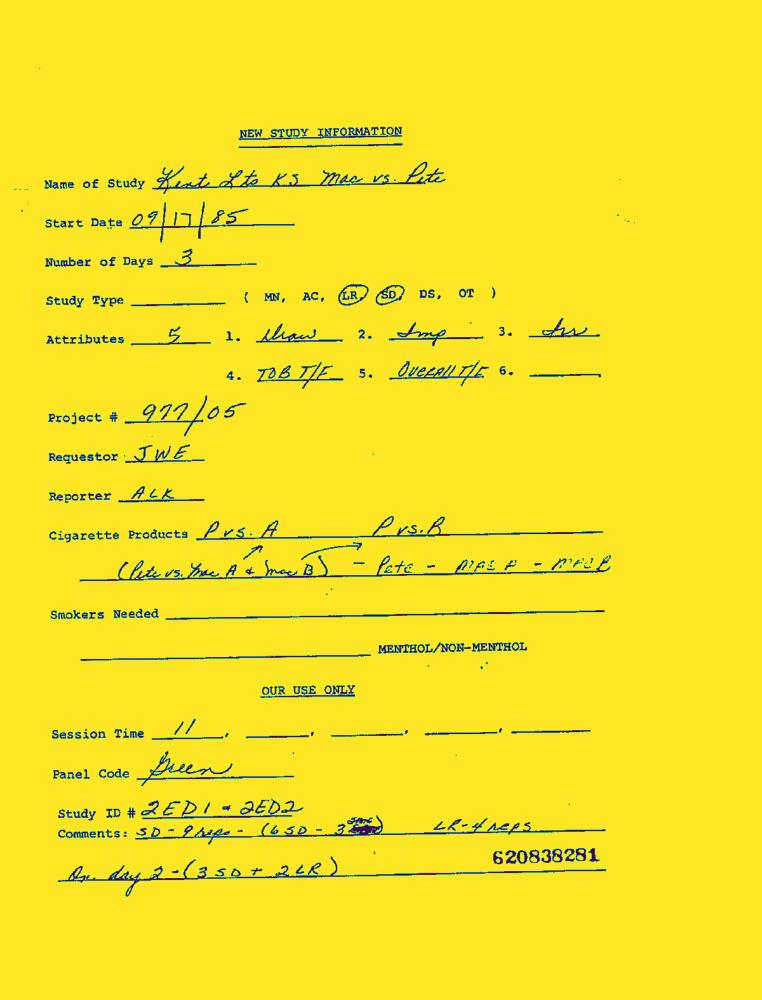 NEW STUDY INFORMATION
Name of Study Kent Lts KS Mac vs. Pete
Start Date 09/17/85
Number of Days 3
Study Type ( MN, AC, LR, SD, DS, OT )
Attributes 5 1. Draw 2. Imp 3. Irr
4. TOB T/F 5. OVERAll T/F 6.
Project # 977/05
Requestor JWE
Reporter ALK
Cigarette Products P vs. A P vs. B
(Pete vs. Mac A & Mac B) - Pete - MAC A - MAC B
Smokers Needed
MENTHOL/NON-MENTHOL
OUR USE ONLY
Session Time 11 , , , ,
Panel Code Green
Study ID # 2ED1 & 2ED2
Comments: SD - 9 Reps - (6 SD - 3 same) LR - 4 REPS
On day 2 - (3 SD + 2 LR)
620838281